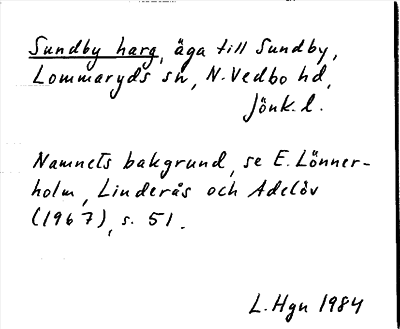 Sundby harg, äga till Sundby,
Lommaryds sn, N. Vedbo hd,
Jönk. l.
Namnets bakgrund, se E. Lönner-
holm, Linderås och Adelöv
(1967), s. 51.
L. Hgn 1984